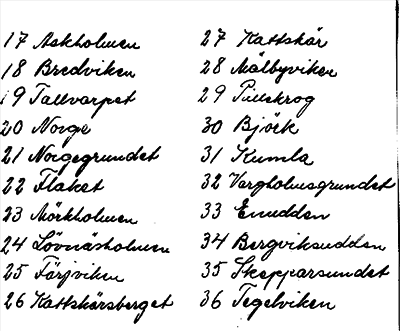 17 Askholmen
18 Bredviken
19 Tallvarpet
20 Norge
21 Norgegrundet
22 Flaket
23 Mörkholmen
24 Lövnäsholmen
25 Färjviken
26 Kattskärsberget
27 Kattskär
28 Målbyviken
29
30 Björk
31 Kumla
32 Vargholmsgrundet
33 Enudden
34 Bergviksudden
35 Skepparsundet
36 Tegelviken